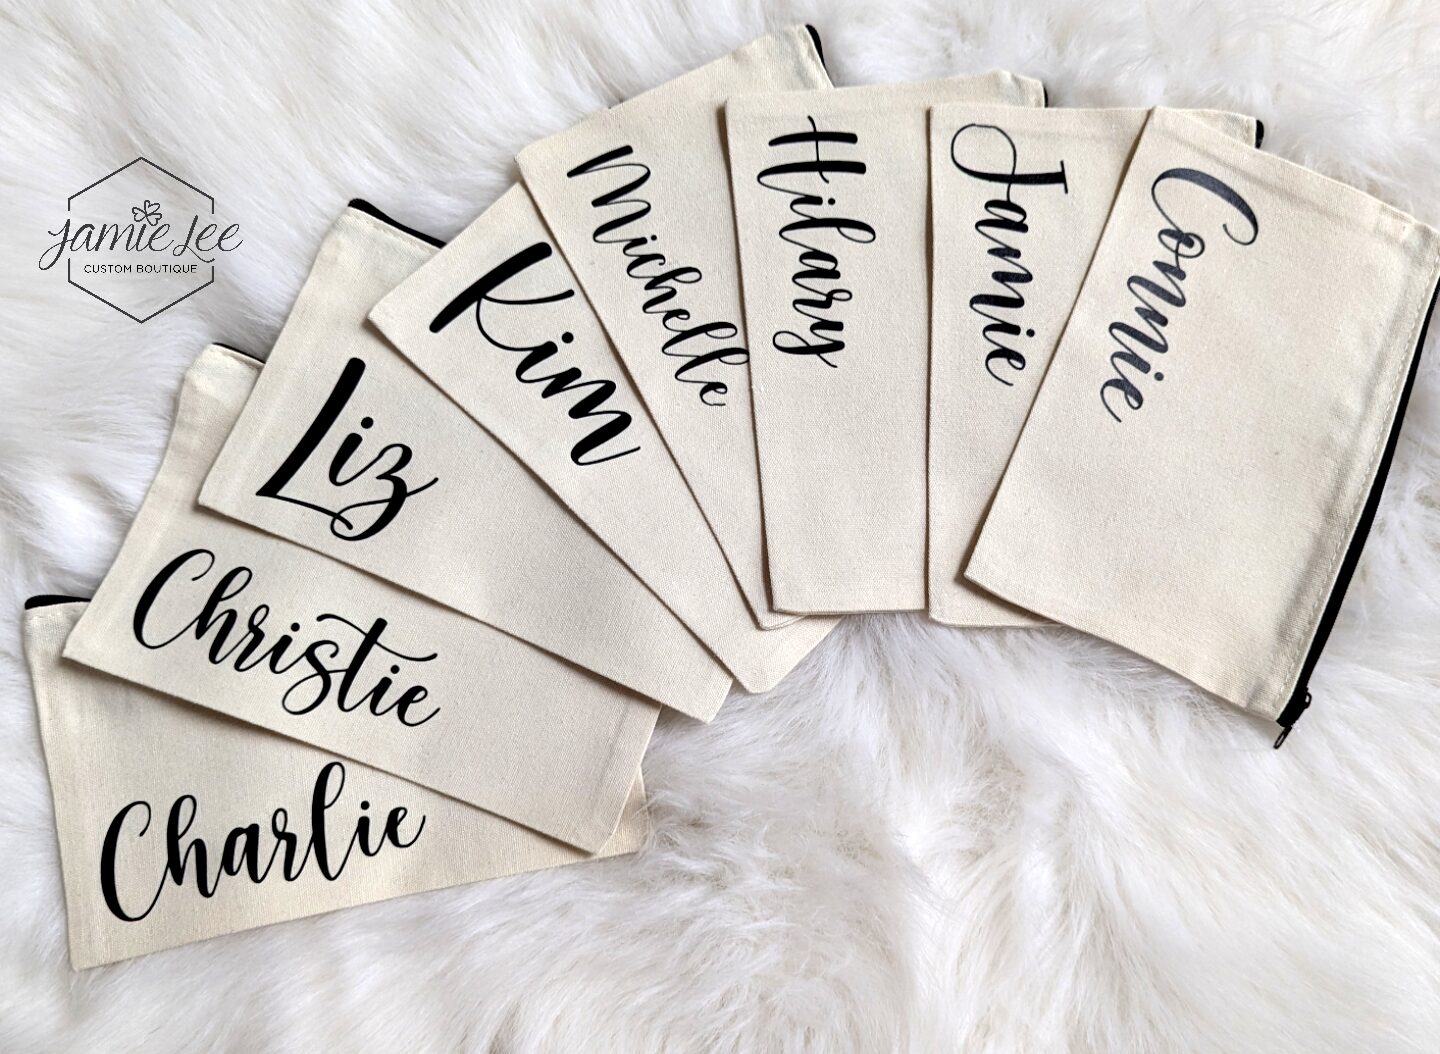 Jamie Lee
CUSTOM BOUTIQUE
Charlie
Christie
Liz
Kim
Michelle
Hilary
Jamie
Connie